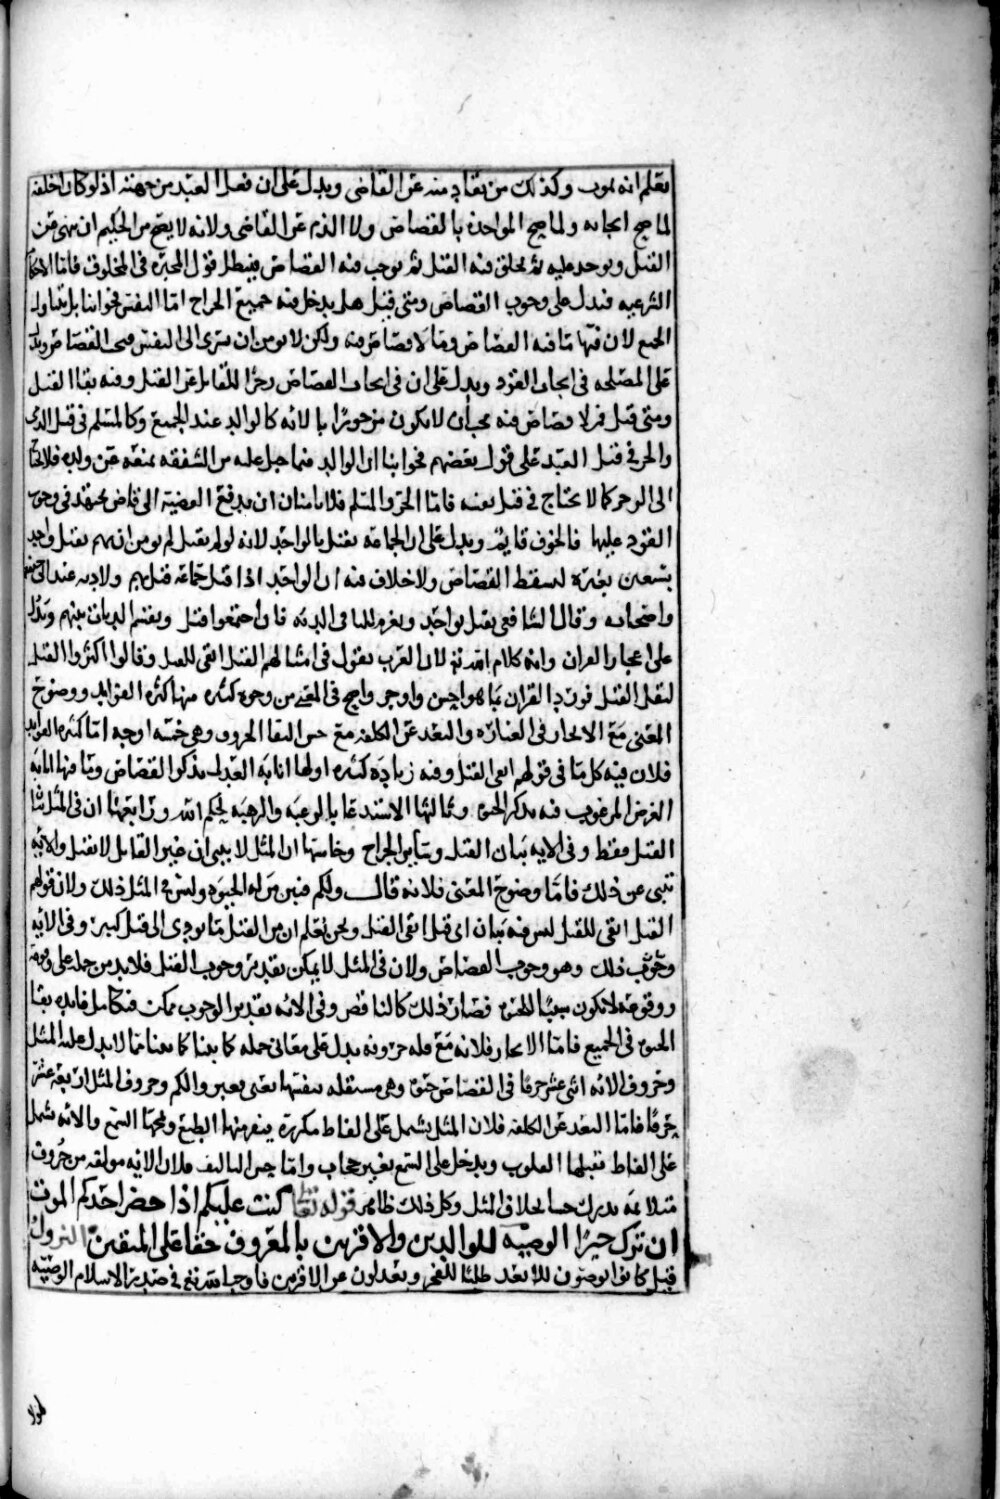 نعلم انه يموت وكذلك من يقاد منه عن القاضي ويدل على ان فعل العبد من جهته اذ لو كان خلقه
لما صح ايجابه ولما صح المواخذة بالقصاص ولا الذم عن القاضي ولانه لا يصح من الحكيم ان ينهى عن
القتل ويوعد عليه ثم يخلق فيه القتل ثم يوجب فيه القصاص فيبطل قول المجبرة في المخلوق فاما الاحكام
الشرعيه فتدل على وجوب القصاص ومتى قيل هل يدخل فيه جميع الجراح اما النفس فجوابنا بل يتناول
الجميع لان فيها ما فيه القصاص وما لا قصاص فيه ولكن لا يومن ان يسرى الى النفس فيجب القصاص ويدل
على المصلحه في ايجاب القود ويدل على ان في ايجاب القصاص زجرا للقاتل عن القتل وفيه بقا القتيل
ومتى قيل فمن لا قصاص فيه يجب أن لا يكون مزجورا بالانه كالوالد عند الجميع وكالمسلم في قتل الذمي
والحر في قتل العبد على قول بعضهم فجوابنا ان الوالد فيما جبل عليه من الشفقه يمنعه عن ولده فلا يحتاج
الى الزجر كما لا يحتاج في قتل نفسه فاما الحر والمسلم فلا يامنان ان يدفع القضية الى قاض يجتهد في وجوب
القود عليها فالخوف قايم ويدل على ان الجماعة تقتل بالواحد لانه لو لم يقتل لم يومن ان يهم بقتل واحد
يستعين بغيره ليسقط القصاص ولا خلاف فيه ان الواحد اذا قتل جماعة قتل بهم ولا دية عند ابي حنيفه
واصحابه وقال الشافعي يقتل بواحد ويغرم للباقي الدية فان اجتمعوا قتل ويقسم الديات بينهم ويدل
على اعجاز القران وانه كلام الله تعالى لان العرب تقول في امثالهم القتل انفى للقتل وقالوا اكثروا القتل
ليقل القتل فورد القران بما هو احسن واوجز واجمع في المعنى من وجوه كثيره منها كثرة الفوايد ووضوح
المعنى مع الايجاز في العبارة والبعد عن الكلفه مع حسن التفا الحروف وهي خمسة اوجه اما كثرة الفوايد
فلان فيه كل ما في قولهم انفى القتل وفيه زياده كثيره اولها ابانة العدل بذكر القصاص وثانيها ابانة
الغرض المرغوب فيه بذكر الحيوة وثالثها الاستدعا بالرغبه والرهبه لحكم الله ورابعها ان في المثل بيان
القتل فقط وفي الايه بيان القتل وساير الجراح وخامسها ان المثل لا يبين ان غير القاتل لا يقتل والايه
تنبي عن ذلك فاما وضوح المعنى فلانه قال ولكم فبين من له الحيوة وليس في المثل ذلك ولان قولهم
القتل انفى للقتل ليس فيه بيان اي قتل انفى القتل ونحن نعلم ان من القتل ما يودي الى قتل كبير وفي الايه
وجوب ذلك وهو وجوب القصاص ولان في المثل لا يمكن تقدير وجوب القتل فلا بد من حمله على وقوعه
ووقوعه لا تكون سببا للحيوة فصار ذلك كالناقض وفي الايه تقدير الوجوب يمكن فتكامل فايده بقا
الحيوة في الجميع فاما الايجاز فلانه مع قلة حروفه يدل على معاني جمله كما بينا ما لا يدل عليه المثل
وحروف الايه اثنى عشر حرفا في القصاص حيوة وهي مستقله بنفسها تغني بغير ولكم وحروف المثل اربعة عشر
حرفا فاما البعد عن الكلفه فلان المثل يشمل على الفاظ مكررة ينفر منها الطبع ويمجها السمع والايه تشمل
على الفاظ تقبلها القلوب ويدخل على السمع بغير حجاب واما حسن التاليف فلان الايه مولفه من حروف
متلايمة يدرك حسا بخلاف المثل وكل ذلك ظاهر قوله تعالى كتب عليكم اذا حضر احدكم الموت
ان ترك خيرا الوصيه للوالدين والاقربين بالمعروف حقا على المتقين النزول
قيل كانوا يوصون للابعد طلبا للفخر ويعدلون عن الاقربين فاوجب الله تعالى في صدر الاسلام الوصيه